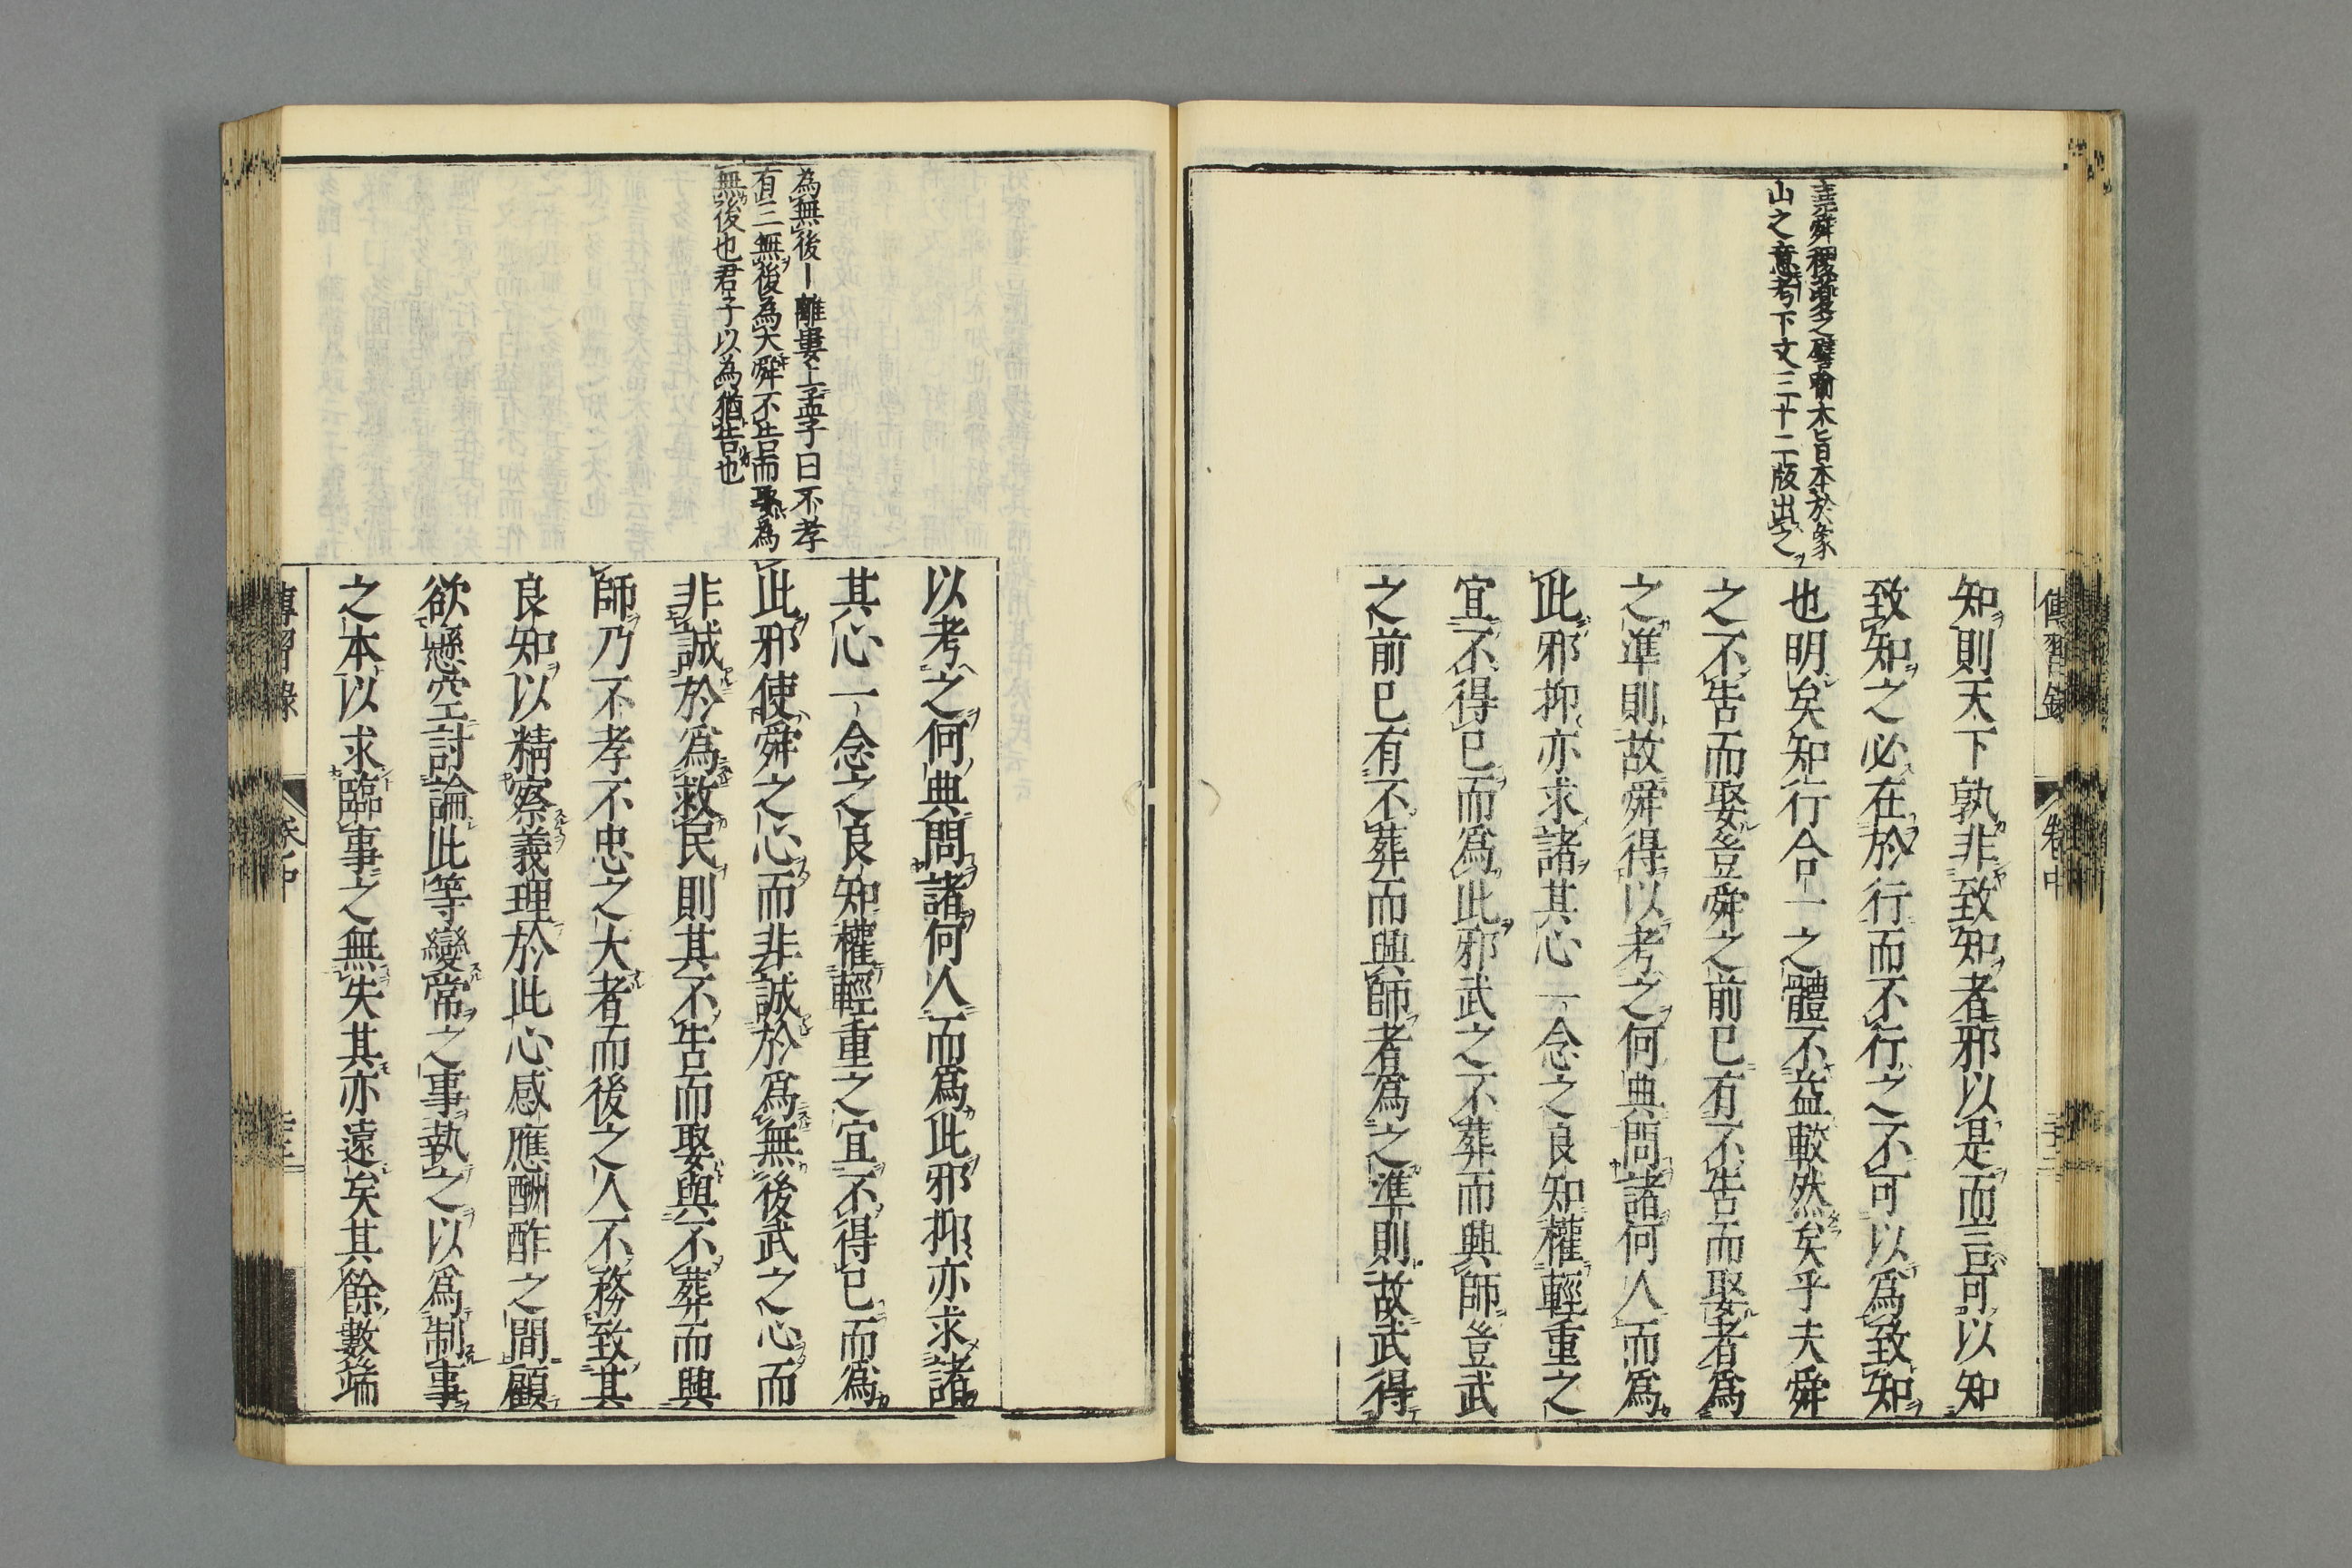 傳習錄
卷中
堯舜稷夔之譬喩本旨本於象
山之意考下文三十二版出之
知則天下孰非致知者邪以是而言可以知
致知之必在於行而不行之不可以爲致知
也明矣知行合一之體不益較然矣乎夫舜
之不告而娶豈舜之前已有不告而娶者爲
之準則故舜得以考之何典問諸何人而爲
此邪抑亦求諸其心一念之良知權輕重之
宜不得已而爲此邪武之不葬而興師豈武
之前已有不葬而興師者爲之準則故武得
為無後ー離婁上孟子曰不孝
有三無後為大舜不告而娶為
無後也君子以為猶告也
以考之何典問諸何人而爲此邪抑亦求諸
其心一念之良知權輕重之宜不得已而爲
此邪使舜之心而非誠於爲無後武之心而
非誠於爲救民則其不告而娶與不葬而興
師乃不孝不忠之大者而後之人不務致其
良知以精察義理於此心感應酬酢之間顧
欲懸空討論此等變常之事執之以爲制事
之本以求臨事之無失其亦遠矣其餘數端
傳習錄
卷中